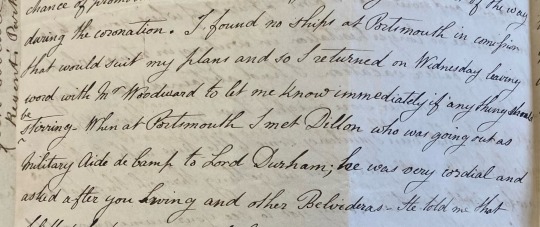 chance of promo
of the way
during the coronation. I found no ships at Portsmouth in comission
that would suit my plans and so I returned on Wednesday leaving
word with Mr Woodward to let me know immediately if anything should
be
stirring - When at Portsmouth I met Dillon who was going out as
Military Aide de Camp to Lord Durham; he was very cordial and
asked after you Irving and other Belvideras - He told me that